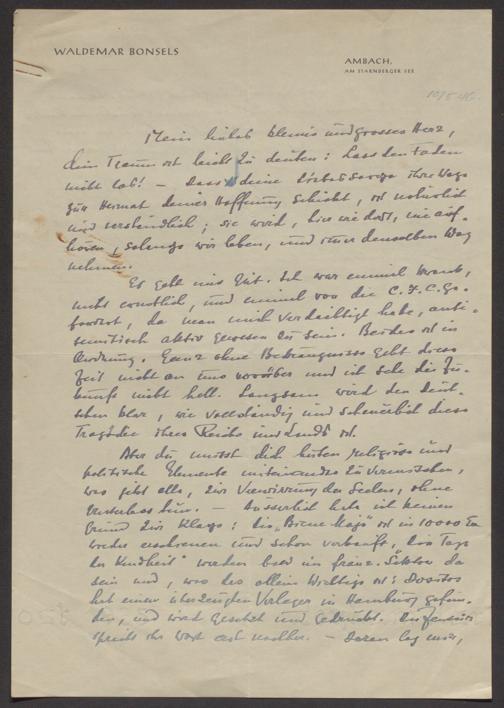 WALDEMAR BONSELS
AMBACH,
AM STARNBERGER SEE
10/5 46.
Mein liebes kleines und grosses Herz,
dein Traum ist leicht zu deuten: Lass den Faden
nicht los! – Dass deine Liebe ihre Wege
zur Heimat deiner Hoffnung schickt, ist natürlich
und verständlich; sie wird, hier wie dort, nie auf-
hören, solange wir leben, und immer denselben Weg
nehmen.
Es geht uns gut. Ich war einmal krank,
nicht ernstlich, und einmal von die C.I.C. ge-
fordert, da man mich verdächtigt habe, anti-
semitisch aktiv gewesen zu sein. Beides ist in
Ordnung. Ganz ohne Bedrängnisse geht diese
Zeit nicht an uns vorüber und ich sehe die Zu-
kunft nicht hell. Langsam wird den Deut-
schen klar, wie vollständig und scheusslich diese
Tragödie ihres Reichs und Lands ist.
Aber du musst dich hüten religiöse und
politische Elemente miteinander zu vermischen,
was jetzt alle, zur Verwirrung der Seelen, ohne
tun. – Äusserlich habe ich keinen
Grund zur Klage: die „Biene Maja" ist in 10000 Ex
wieder erschienen und schon verkauft, die „Tage
der Kindheit" werden bald im franz. Sektor da
sein und, was das allein Wichtige ist: Dositos
hat einen überzeugten Verleger in Hamburg gefun-
den, und wird gesetzt und gedruckt.
spricht ihr Wort erst nachher. – Daran lag mir,